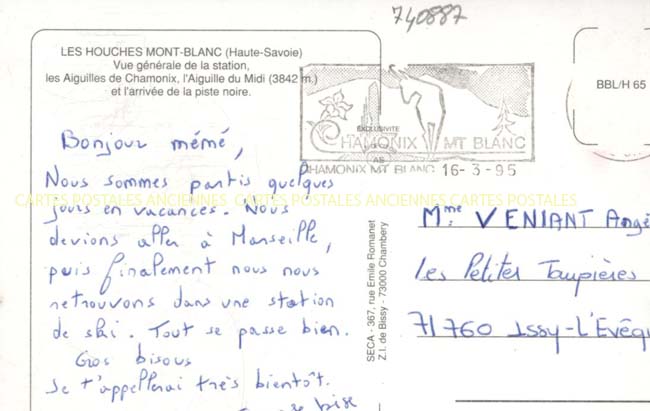 740887
LES HOUCHES MONT-BLANC (Haute-Savoie)
Vue générale de la station,
les Aiguilles de Chamonix, l'Aiguille du Midi (3842 m.)
et l'arrivée de la piste noire.
BBL/H 65
EXCLUSIVITE
CHAMONIX MT BLANC
CHAMONIX MT BLANC 16-3-95
Bonjour mémé,
Nous sommes partis quelques
jours en vacances. Nous
devions aller à Marseille,
puis finalement nous nous
retrouvons dans une station
de ski. Tout se passe bien.
Gros bisous
Je t'appellerai très bientôt.
bise
CARTES POSTALES ANCIENNES CARTES POSTALES ANCIENNES CARTES POSTALES
SECA - 367, rue Emile Romanet
Z.I. de Bissy - 73000 Chambery
Mme VENIANT Angè
Les Petites Taupières
71760 Issy-L'Evêqu